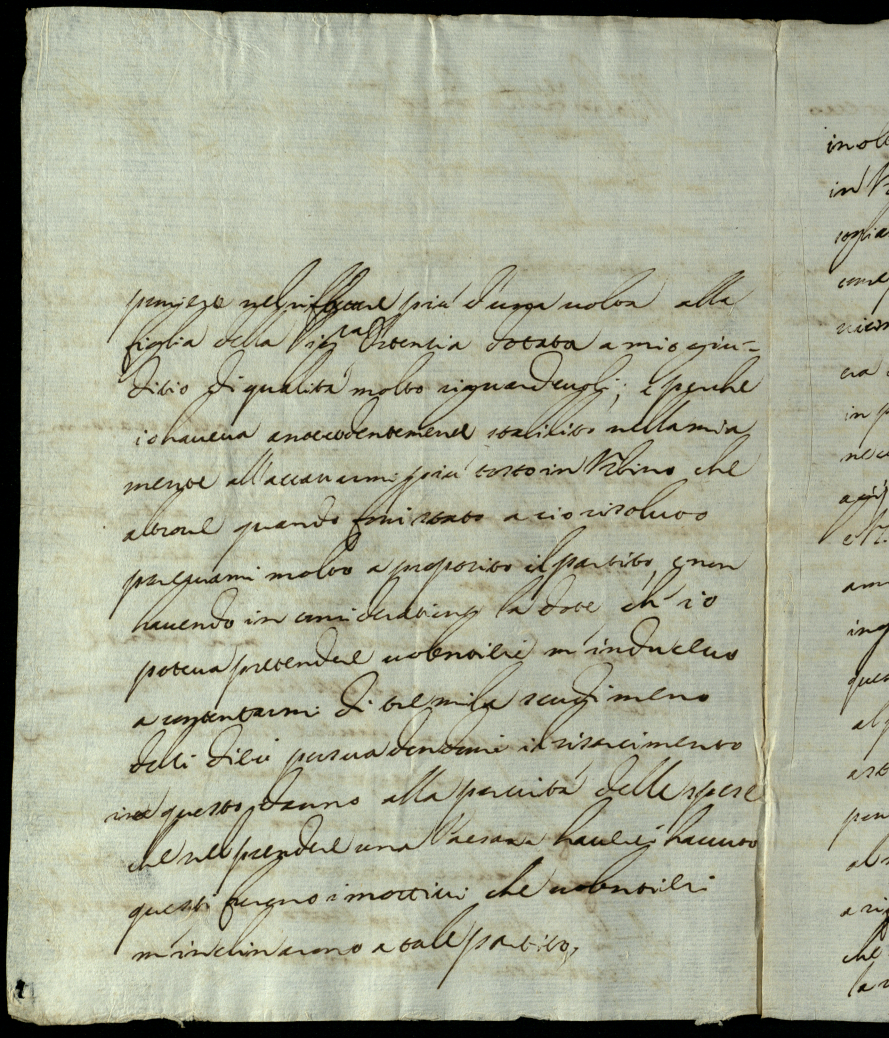 pensiere nel riflettere più d'una volta alla
figlia della Sig.ra Ortensia dotata a mio giu=
ditio di qualità molto riguardevoli; e perche
io haveva antecedentemente stabilito nella mia
mente all'accasarmi più tosto in Urbino che
altrove quando fossi stato a ciò risoluto
parevami molto a proposito il partito, e non
havendo in consideratione la dote ch'io
poteva pretendere volentieri m'inducevo
a contentarmi di tre mila scudi meno
delli dieci persuadendomi il risarcimento
in questo danno alla parcità delle spese
che nel prendere una Paesana haverei havuto
questi furono i mottivi che volentieri
m'inclinarono a tale partito,
in
in
come
in p
ne
che
la